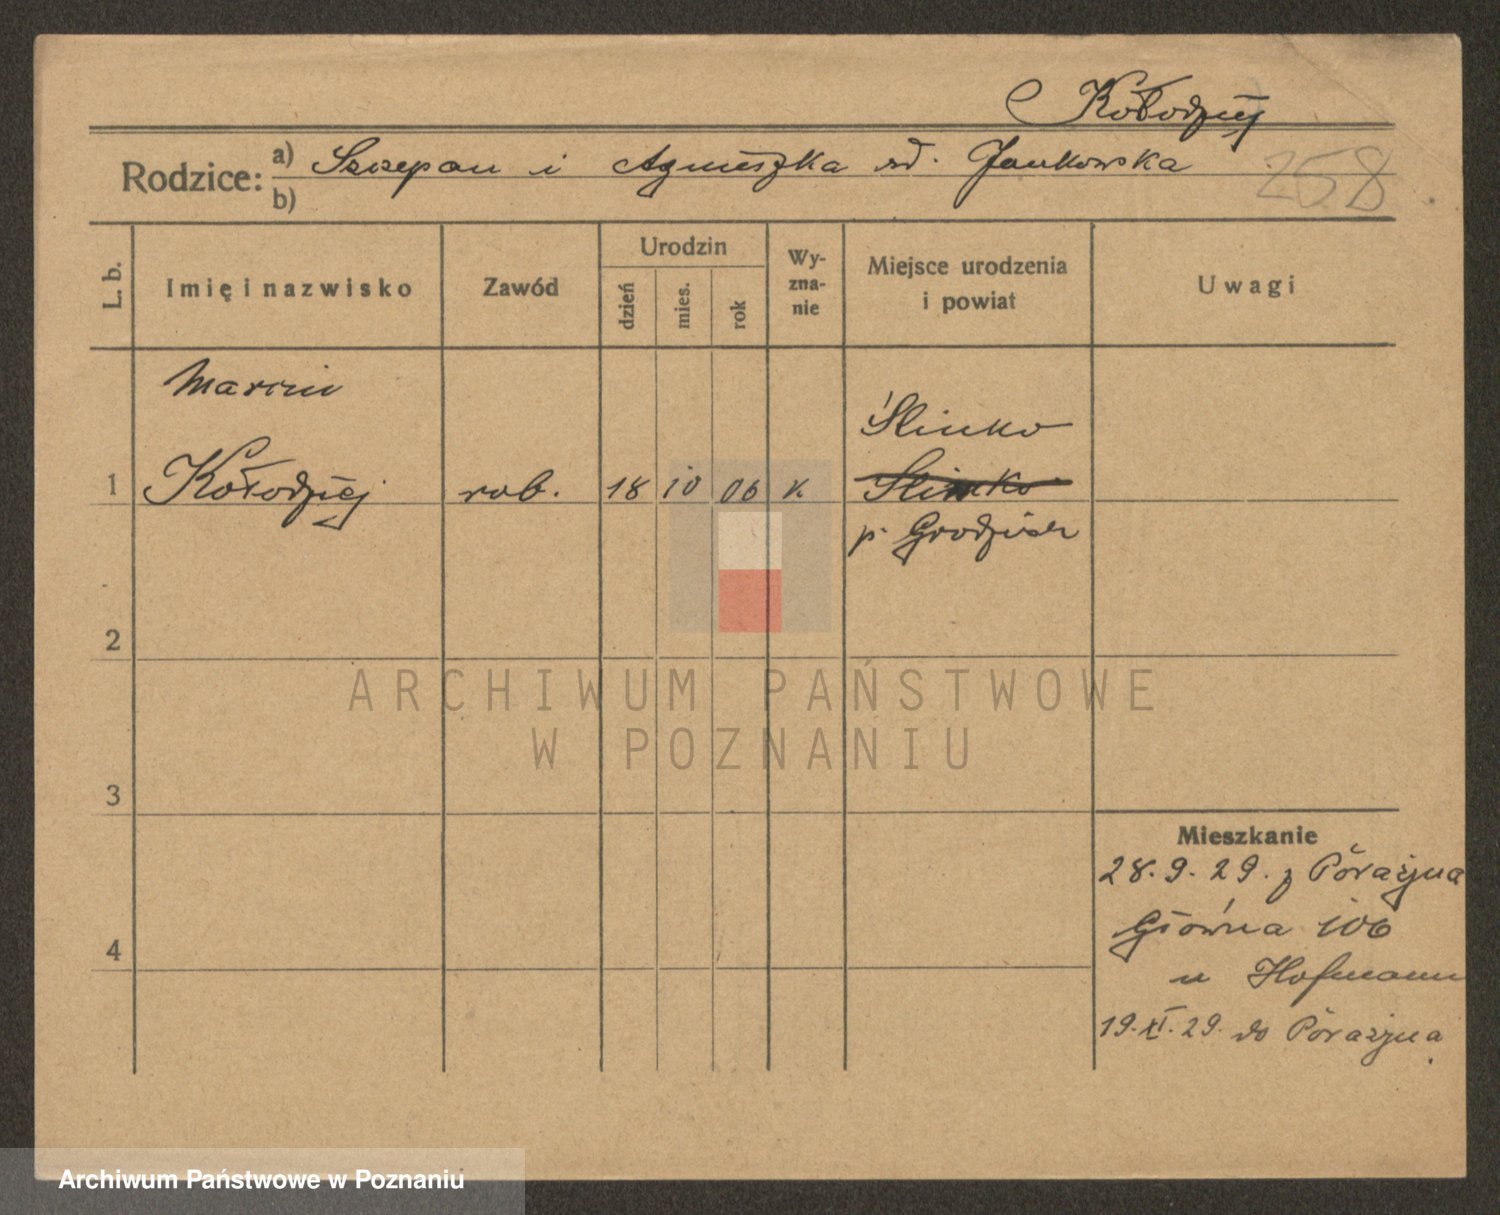 Kołodziej
Rodzice: a) Szczepan i Agnieszka rd. Jankowska
b)
258
L. b.
Imię i nazwisko
Zawód
Urodzin
dzień
mies.
rok
Wy-
zna-
nie
Miejsce urodzenia
i powiat
Uwagi
Marcin
Ślinko
1 Kołodziej rob. 18 10 06 k. Slinko
p. Grodzisk
2
ARCHIWUM PAŃSTWOWE
W POZNANIU
3
Mieszkanie
28.9.29. z Porażyna
Główna 106
4
u Hofmann
19.XI.29. do Porażyna
Archiwum Państwowe w Poznaniu